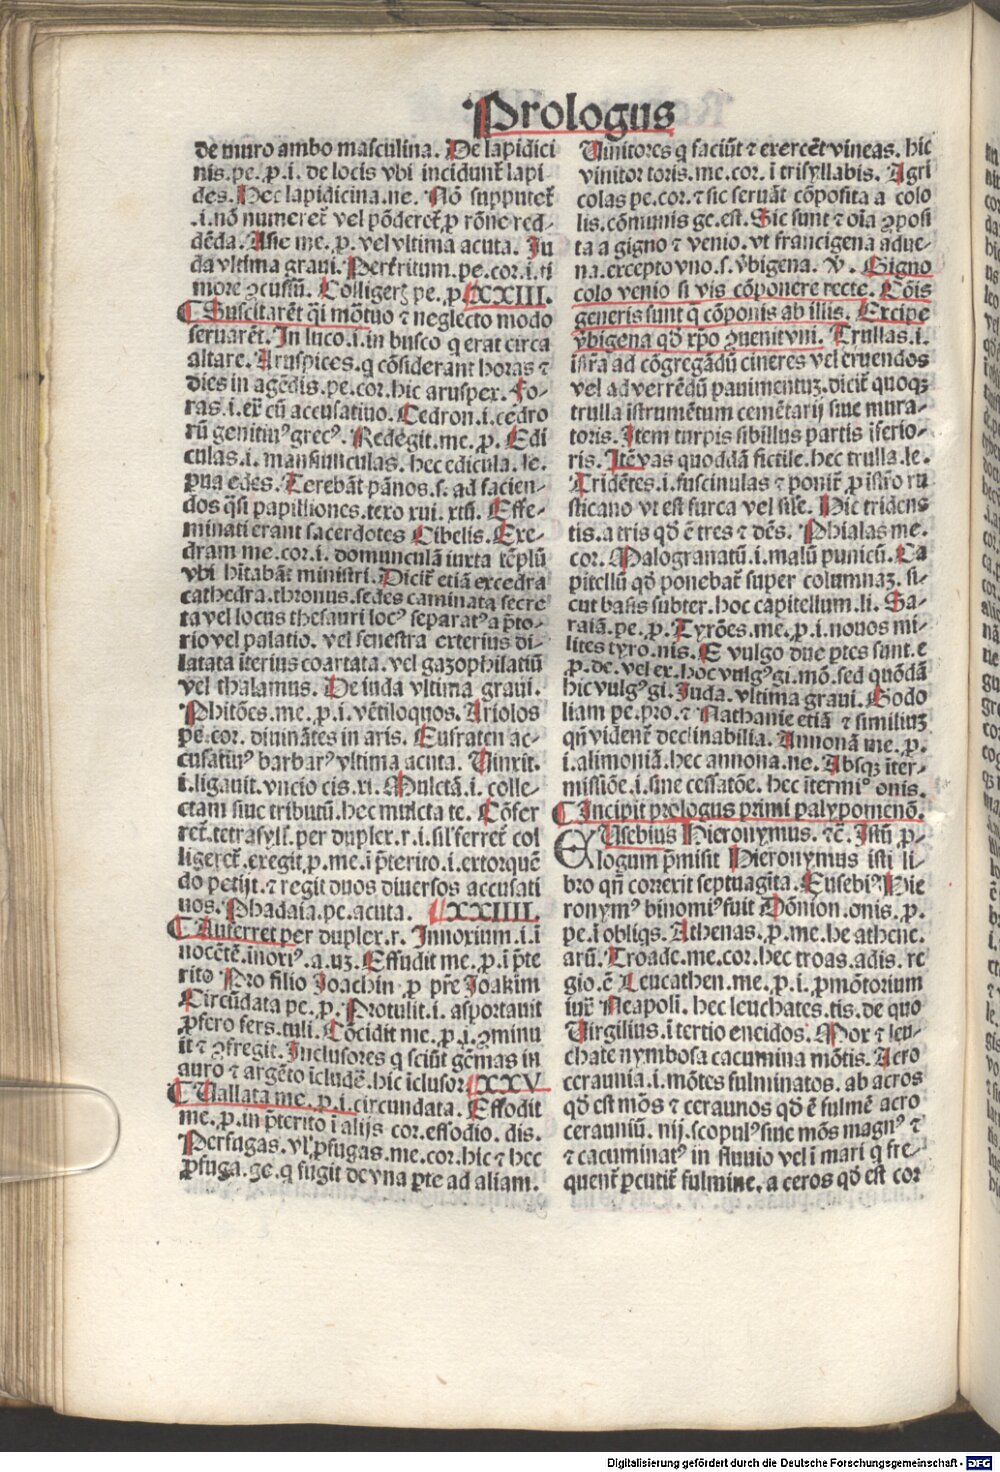 Prologus
de muro ambo masculina. De lapidici
nis.pe.ꝓ.i. de locis vbi incidunt̃ lapi
des. Hec lapidicina.ne. Nõ supputet̃
.i.nõ numeret̃ vel põderet̃ ꝓ rõne red-
dẽda. Asie me.ꝓ. vel vltima acuta. Ju
da vltima graui. Perfritum.pe.cor.i.ti
more ꝯcussũ. Colligerꝫ pe.ꝓ. XXIII.
¶ Suscitarẽt q̃i mõtuo ⁊ neglecto modo
seruarẽt. In luco.i.in busco q erat circa
altare. Aruspices.q cõsiderant horas ⁊
dies in agẽdis.pe.cor.hic aruspex. Fo-
ras.i.ex̃ cũ accusatiuo. Cedron.i.cedro
rũ genitiuꝰ grecꝰ. Redegit.me.ꝓ. Edi
culas.i.mansiunculas.hec edicula.le.
ꝓua edes. Terebãt pãnos.s.ad facien-
dos q̃si papilliones.texo xui.xtũ. Effe-
minati erant sacerdotes Cibelis. Exe-
dram me.cor.i. domunculã iuxta tẽplũ
vbi hĩtabãt ministri. Dicit̃ etiã excedra
cathedra.thronus.sedes caminata secre
ta vel locus thesauri locꝰ separatꝰ a p̃to-
rio vel palatio. vel fenestra exterius di-
latata iterius coartata. vel gazophilatiũ
vel thalamus. De iuda vltima graui.
Phitões.me.ꝓ.i.vẽtiloquos. Ariolos
pe.cor. diuinãtes in aris. Eufraten ac-
cusatiuꝰ barbarꝰ vltima acuta. Uinxit.
i.ligauit.vncio cis.xi. Mulctã.i. colle-
ctam siue tributũ.hec mulcta te. Cõfer
ret̃.tetrasyll̃.per dupler.r.i.sil̃ ferret̃ col
ligeret̃.exegit ꝓ.me.i p̃terito.i.extorquẽ
do petijt.⁊ regit duos diuersos accusati
uos. Phadaia.pe.acuta. XXIIII.
¶ Auferret per dupler.r. Innoxium.i.ĩ
nocẽtẽ.inoxiꝰ.a.uꝫ. Effudit me.ꝓ.ĩ p̃te
rito Pro filio Joachin ꝓ pr̃e Joakim
Circũdata pe.ꝓ. Protulit.i.asportauit
ꝓfero fers.tuli. Cõcidit me.ꝓ.i.ꝯminu
it ⁊ ꝯfregit. Inclusores q sciũt gẽmas in
auro ⁊ argẽto ĩcludẽ.hic ĩclusor XXV
¶ Uallata me.ꝓ.i.circundata. Effodit
me.ꝓ.in p̃terito ĩ alijs cor.effodio.dis.
Perfugas.vl̃ ꝓfugas.me.cor.hic ⁊ hec
ꝓfuga.ge.q fugit de vna ꝑte ad aliam.
Uinitores q faciũt ⁊ exercẽt vineas.hic
vinitor toris.me.cor.ĩ trisyllabis. Agri
colas pe.cor.⁊ sic seruãt cõposita a colo
lis.cõmunis ge.est. Sic sunt ⁊ oĩa ꝯposi
ta a gigno ⁊ venio.vt francigena adue-
na.excepto vno.s.v̾bigena. V. Gigno
colo venio si vis cõponere recte. Cõis
generis sunt q cõponis ab illis. Excipe
v̾bigena qd̃ xp̃o ꝯuenit vni. Trullas.i.
istr̃a ad cõgregãdũ cineres vel eruendos
vel ad verrẽdũ pauimentuꝫ.dicit̃ quoqꝫ
trulla ĩstrumẽtum cemẽtarij siue mura-
toris. Item turpis sibillus partis ĩferio-
ris. Itẽ vas quoddã fictile.hec trulla.le.
Tridẽtes.i.fuscinulas ⁊ ponit̃ ꝓ ĩstr̃o ru
sticano vt est furca vel sil̃e. Hic tridens
tis.a tris qd̃ ẽ tres ⁊ dẽs. Phialas me.
cor. Malogranatũ.i.malũ punicũ. Ca
pitellũ qd̃ ponebat̃ super columnaꝫ.si-
cut basis subter.hoc capitellum.li. Sa-
raiã.pe.ꝓ. Tyrões.me.ꝓ.i.nouos mi-
lites tyro.nis. E vulgo due ꝑtes sunt.e
ꝓ.de.vel ex.hoc vulgꝰ gi.mõ.sed quõdã
hic vulgꝰ gi. Juda.vltima graui. Godo
liam pe.pro.⁊ Nathanie etiã ⁊ similiuꝫ
qñ vident̃ declinabilia. Annonã me.ꝓ.
i.alimoniã.hec annona.ne. Absqꝫ ĩter-
missiõe.i.sine cessatõe. hec ĩtermiꝰ onis.
¶ Incipit prologus primi palypomenõ.
EUsebius Hieronymus.⁊c̃. Istũ ꝓ-
logum p̃misit Hieronymus isti li-
bro qñ correxit septuagĩta. Eusebiꝰ Hie
ronymꝰ binomiꝰ fuit Dõnion.onis.ꝓ.
pe.ĩ obliqs. Athenas.ꝓ.me.he athene.
arũ. Troade.me.cor.hec troas.adis.re
gio.ẽ Leucathen.me.ꝓ.i.ꝓmõtorium
iux̃ Neapoli. hec leuchates.tis.de quo
Virgilius.ĩ tertio eneidos. Mox ⁊ leu-
chate nymbosa cacumina mõtis. Acro
ceraunia.i.mõtes fulminatos.ab acros
qd̃ est mõs ⁊ ceraunos qd̃ ẽ fulmẽ acro
cerauniũ.nij.scopulꝰ siue mõs magnꝰ ⁊
⁊ cacuminatꝰ in fluuio vel ĩ mari q fre-
quent̃ ꝑcutit̃ fulmine, a ceros qd̃ est cor
Digitalisierung gefördert durch die Deutsche Forschungsgemeinschaft - DFG